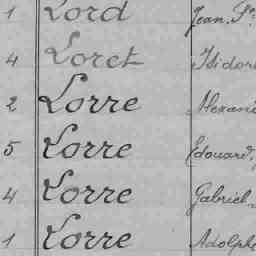 1 Lord Jean, Fs
4 Loret Isidore
2 Lorre Alexand
5 Lorre Edouard,
4 Lorre Gabriel
1 Lorre Adolphe